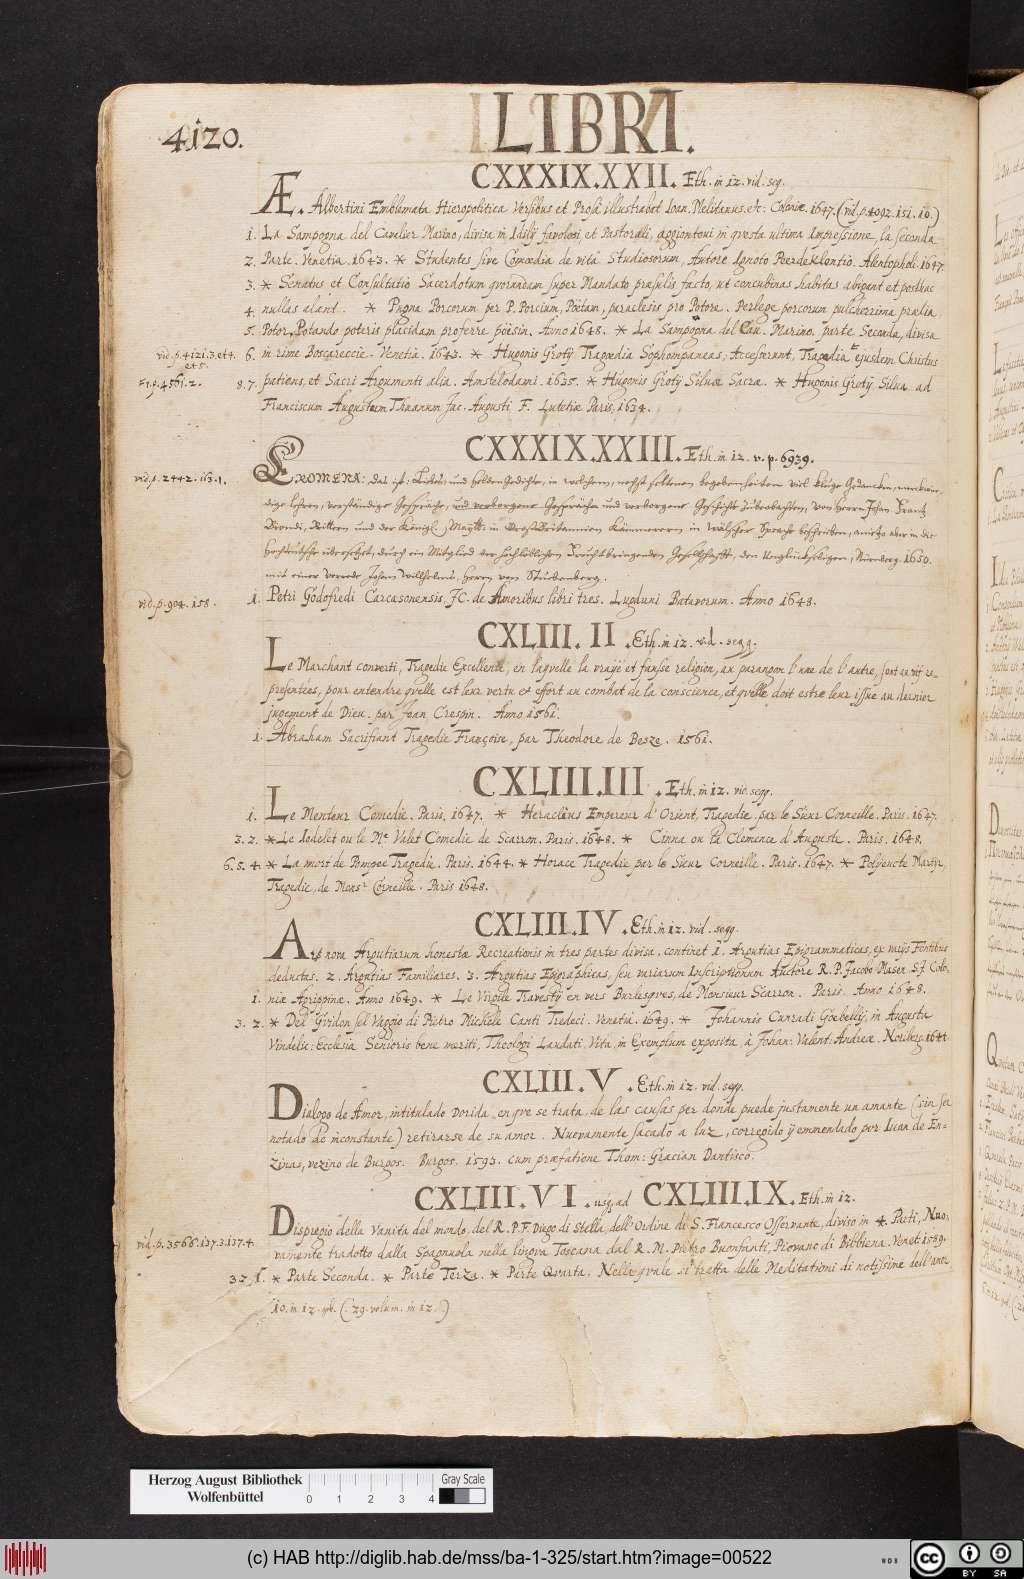 4120.
LIBRI.
CXXXIX.XXII. Eth. in 12. vid. seq.
Æ. Albertini Emblemata Hieropolitica Versibus et Prosâ illustrabat Ioan. Melitanus. &c: Coloniæ. 1647. (vid. p. 4092. 151. 10.)
1. La Sampogna del Cavalier Marino, divisa in Idilij favolosi et Pastorali, aggiontoui in questa ultima Impressione, la seconda
2. Parte. Venetia. 1643. * Studentes sive Comœdia de vita Studiosorum, Autore Ignoto Peerdeklontio. Alentopholi. 1647.
3. * Senatus et Consultatio Sacerdotum quorundam super Mandato præsulis facto, ut concubinas habitas abigant et posthac
4. nullas alant. * Pugna Porcorum per P. Porcium, Poëtam, paraclesis pro Potore. Perlege porcorum pulcherrima prælia,
5. Potor, Potando poteris placidam proferre poësin. Anno 1648. * La Sampogna del Cau. Marino. parte Seconda, divisa
vid. p. 4121. 3. et 4. et 5. 6. in rime Boscareccie. Venetia. 1643. * Hugonis Grotij Tragœdia Sophompaneas, Accesserunt, Tragœdia ejusdem Christus
p. 4561. 2. 8. 7. patiens, et Sacri Argumenti alia. Amstelodami. 1635. * Hugonis Grotij Siluæ Sacræ. * Hugonis Grotij Silua ad
Franciscum Augustum Thuanum Jac. Augusti F. Lutetiæ Paris. 1634.
CXXXIX.XXIII. Eth. in 12. v. p. 6939.
vid. p. 2442. 163. 1. EROMENA: das ist, Liebes und Helden Gedicht, in welchem, nechst seltenen begebenheiten viel kluge Gedancken, merckwür-
dige lehren, verständige Gespräche, und verborgene Geschichte zubeobachten, Von Herrn Johan Frantz
Biondi, Rittern und der Königl. Maytt: in GrosBritannien Cämmerern in Wälscher Sprache beschrieben, anietzo aber in die
Hochteutsche übersetzet, durch ein Mitglied der hochlöblichen Fruchtbringenden Gesellschafft, den Unglückseligen, Nürnberg. 1650.
mit einer Vorrede Johann Willhelms, Herrn von Stubenberg.
vid. p. 904. 158. 1. Petri Godofredi Carcasonensis, JC. de Amoribus libri tres. Lugduni Batavorum. Anno 1648.
CXLIII. II. Eth. in 12. vid. seqq.
Le Marchant converti, Tragedie Excellente, en laquelle la vraye et fausse religion, au parangon l'une de l'autre, sont au vif re-
presentees, pour entendre quelle est leur vertu et effort au combat de la conscience, et quelle doit estre leur issue au dernier
jugement de Dieu. par Jean Crespin. Anno 1561.
1. Abraham Sacrifiant Tragedie Françoise, par Theodore de Besze. 1561.
CXLIII.III. Eth. in 12. vid. seqq.
1. Le Menteur Comedie. Paris. 1647. * Heraclius Empereur d'Orient, Tragedie, par le Sieur Corneille. Paris. 1647.
3. 2. * Le Iodelet ou le Me Valet Comedie de Scarron. Paris. 1648. * Cinna ou la Clemence d'Auguste. Paris. 1648.
6. 5. 4. * La mort de Pompee Tragedie. Paris. 1644. * Horace Tragedie par le Sieur Corneille. Paris. 1647. * Polyeucte Martyr,
Tragedie, de Monsr Corneille. Paris 1648.
CXLIII.IV. Eth. in 12. vid. seqq.
Ars nova Argutiarum honestæ Recreationis in tres partes divisa, continet 1. Argutias Epigrammaticas, ex varijs Fontibus
deductas. 2. Argutias Familiares. 3. Argutias Epigraphicas, seu variarum Inscriptionum Auctore R. P. Jacobo Masen S.J. Colo-
1. niæ Agrippinæ. Anno 1649. * Le Virgile Travesty en vers Burlesques, de Monsieur Scarron. Paris. Anno 1648.
3. 2. * Del Gvidon sel Vaggio di Pietro Michele Canti Tredeci. Venetia. 1649. * Johannis Cunradi Goebelij, in Augusta
Vindelic: Ecclesia Senioris bene meriti, Theologi Laudati, Vita, in Exemplum exposita à Johan: Valent: Andreæ. Noriberg. 1644.
CXLIII. V. Eth. in 12. vid. seqq.
Dialogo de Amor, intitulado Dorida, en que se trata, de las causas per donde puede justamente un amante (sin ser
notado de inconstante) retirarse de su amor. Nuevamente sacado a luz, corregido y emmendado por Iuan de En-
zinas, vezino de Burgos. Burgos. 1593. cum præfatione Thom: Gracian Dantisco.
CXLIII. VI. usq. ad CXLIII.IX. Eth. in 12.
vid. p. 3566. 137. 3. 137. 4. Dispregio della Vanità del mondo, del R. P. F. Diego di Stella, dell'Ordine di S. Francesco Osservante, diviso in 4. Parti, Nuo-
vamente tradotto dalla Spagnuola nella lingua Toscana dal R. M. Pietro Buonfanti, Piovano di Bibbiena. Venet. 1589.
3 2. 1. * Parte Seconda. * Parte Terza. * Parte Quarta. Nella quale si tratta delle Meditationi di notissine dell'amor
10. in 12. (. 29. volum. in 12.)
Herzog August Bibliothek
Wolfenbüttel
0 1 2 3 4
Gray Scale
(c) HAB http://diglib.hab.de/mss/ba-1-325/start.htm?image=00522
WDB
cc BY SA